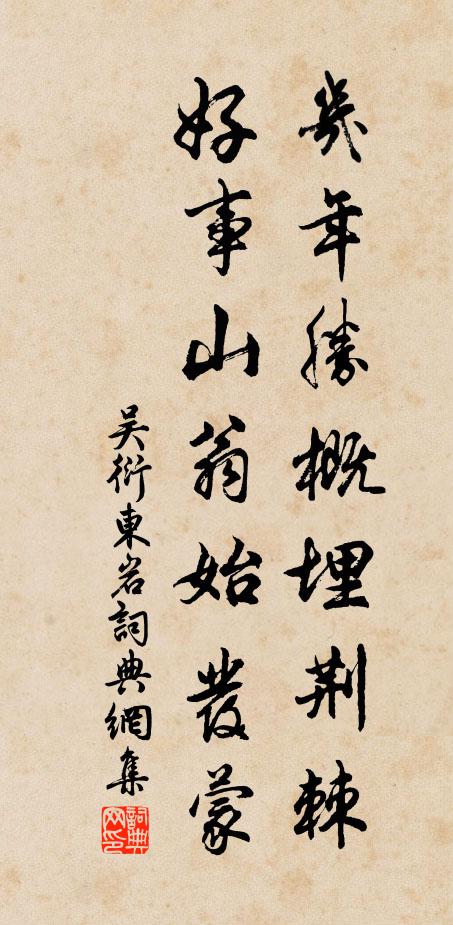 幾年勝概埋荆棘
好事山翁始發蒙
吴衍東岩詞典網集
詞典网印